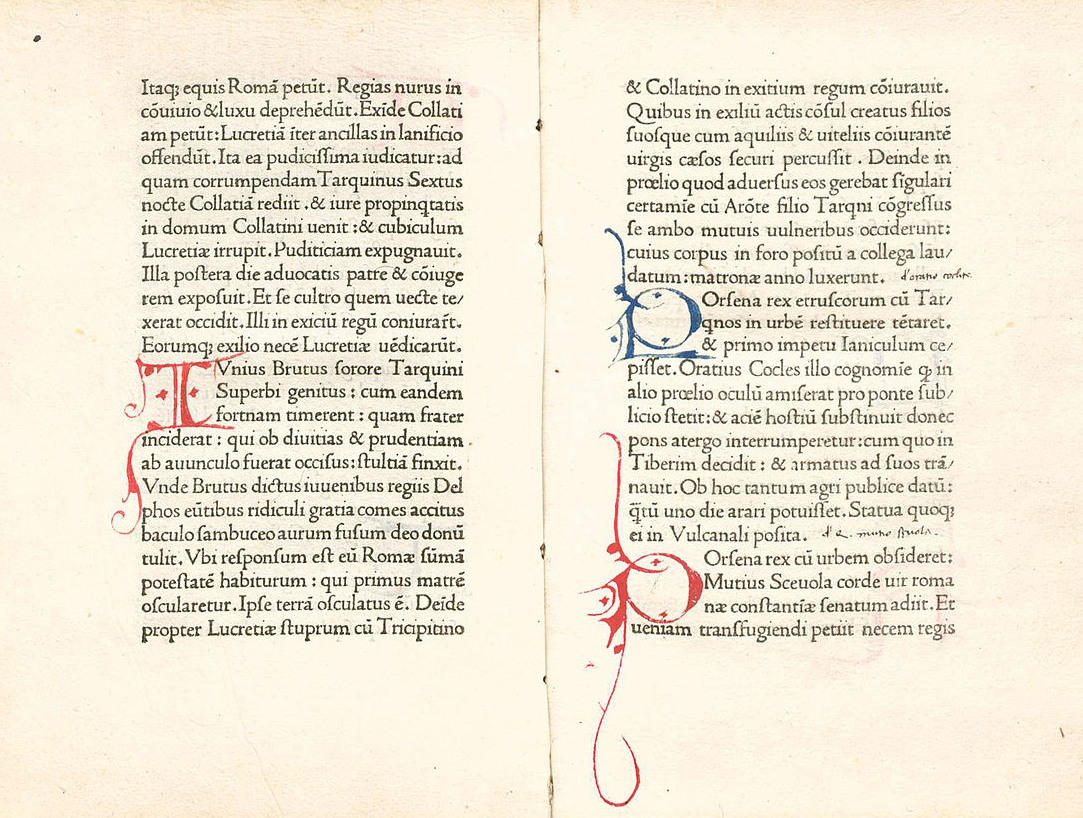 Itaqꝫ equis Romā petūt. Regias nurus in
cōuiuio &luxu deprehēdūt. Exīde Collati
am petūt: Lucretiā īter ancillas in lanificio
offendūt. Ita ea pudiciſſima iudicatur: ad
quam corrumpendam Tarquinus Sextus
nocte Collatiā rediit .& iure propinq̄tatis
in domum Collatini uenit :& cubiculum
Lucretiæ irrupit. Puditiciam expugnauit.
Illa poſtera die aduocatis patre & cōiuge
rem expoſuit. Et ſe cultro quem ueſte te/
xerat occidit. Illi in exiciū regū coniurar̄t.
Eorumqꝫ exilio necē Lucretiæ uēdicarūt.
IVnius Brutus ſorore Tarquini
Superbi genitus : cum eandem
fortnam timerent : quam frater
inciderat : qui ob diuitias & prudentiam
ab auunculo fuerat occiſus: ſtultiā finxit.
Vnde Brutus dictus iuuenibus regiis Del
phos eūtibus ridiculi gratia comes accitus
baculo ſambuceo aurum fuſum deo donū
tulit. Vbi reſponſum eſt eū Romæ ſūmā
poteſtatē habiturum : qui primus matrē
oſcularetur. Ipſe terrā oſculatus ē. Deīde
propter Lucretiæ ſtuprum cū Tricipitino
& Collatino in exitium regum cōiurauit.
Quibus in exiliū actis cōſul creatus filios
ſuoſque cum aquiliis & uiteliis cōiurantē
uirgis cæſos ſecuri percuſſit . Deinde in
prœlio quod aduerſus eos gerebat ſīgulari
certamīe cū Arōte filio Tarq̄ni cōgreſſus
ſe ambo mutuis uulneribus occiderunt:
cuius corpus in foro poſitū a collega lau/
datum: matronæ anno luxerunt.
POrſena rex etruſcorum cū Tar/
q̄nos in urbē reſtituere tētaret.
& primo impetu Ianiculum ce/
piſſet. Oratius Cocles illo cognomīe ꝙ in
alio prœlio oculū amiſerat pro ponte ſub/
licio ſtetit: & aciē hoſtiū ſubſtinuit donec
pons atergo interrumperetur: cum quo in
Tiberim decidit : & armatus ad ſuos trā/
nauit. Ob hoc tantum agri publice datū:
q̄tū uno die arari potuiſſet. Statua quoqꝫ
ei in Vulcanali poſita.
POrſena rex cū urbem obſideret:
Mutius Sceuola corde uir roma
næ conſtantiæ ſenatum adiit. Et
ueniam tranſfugiendi petiit necem regis